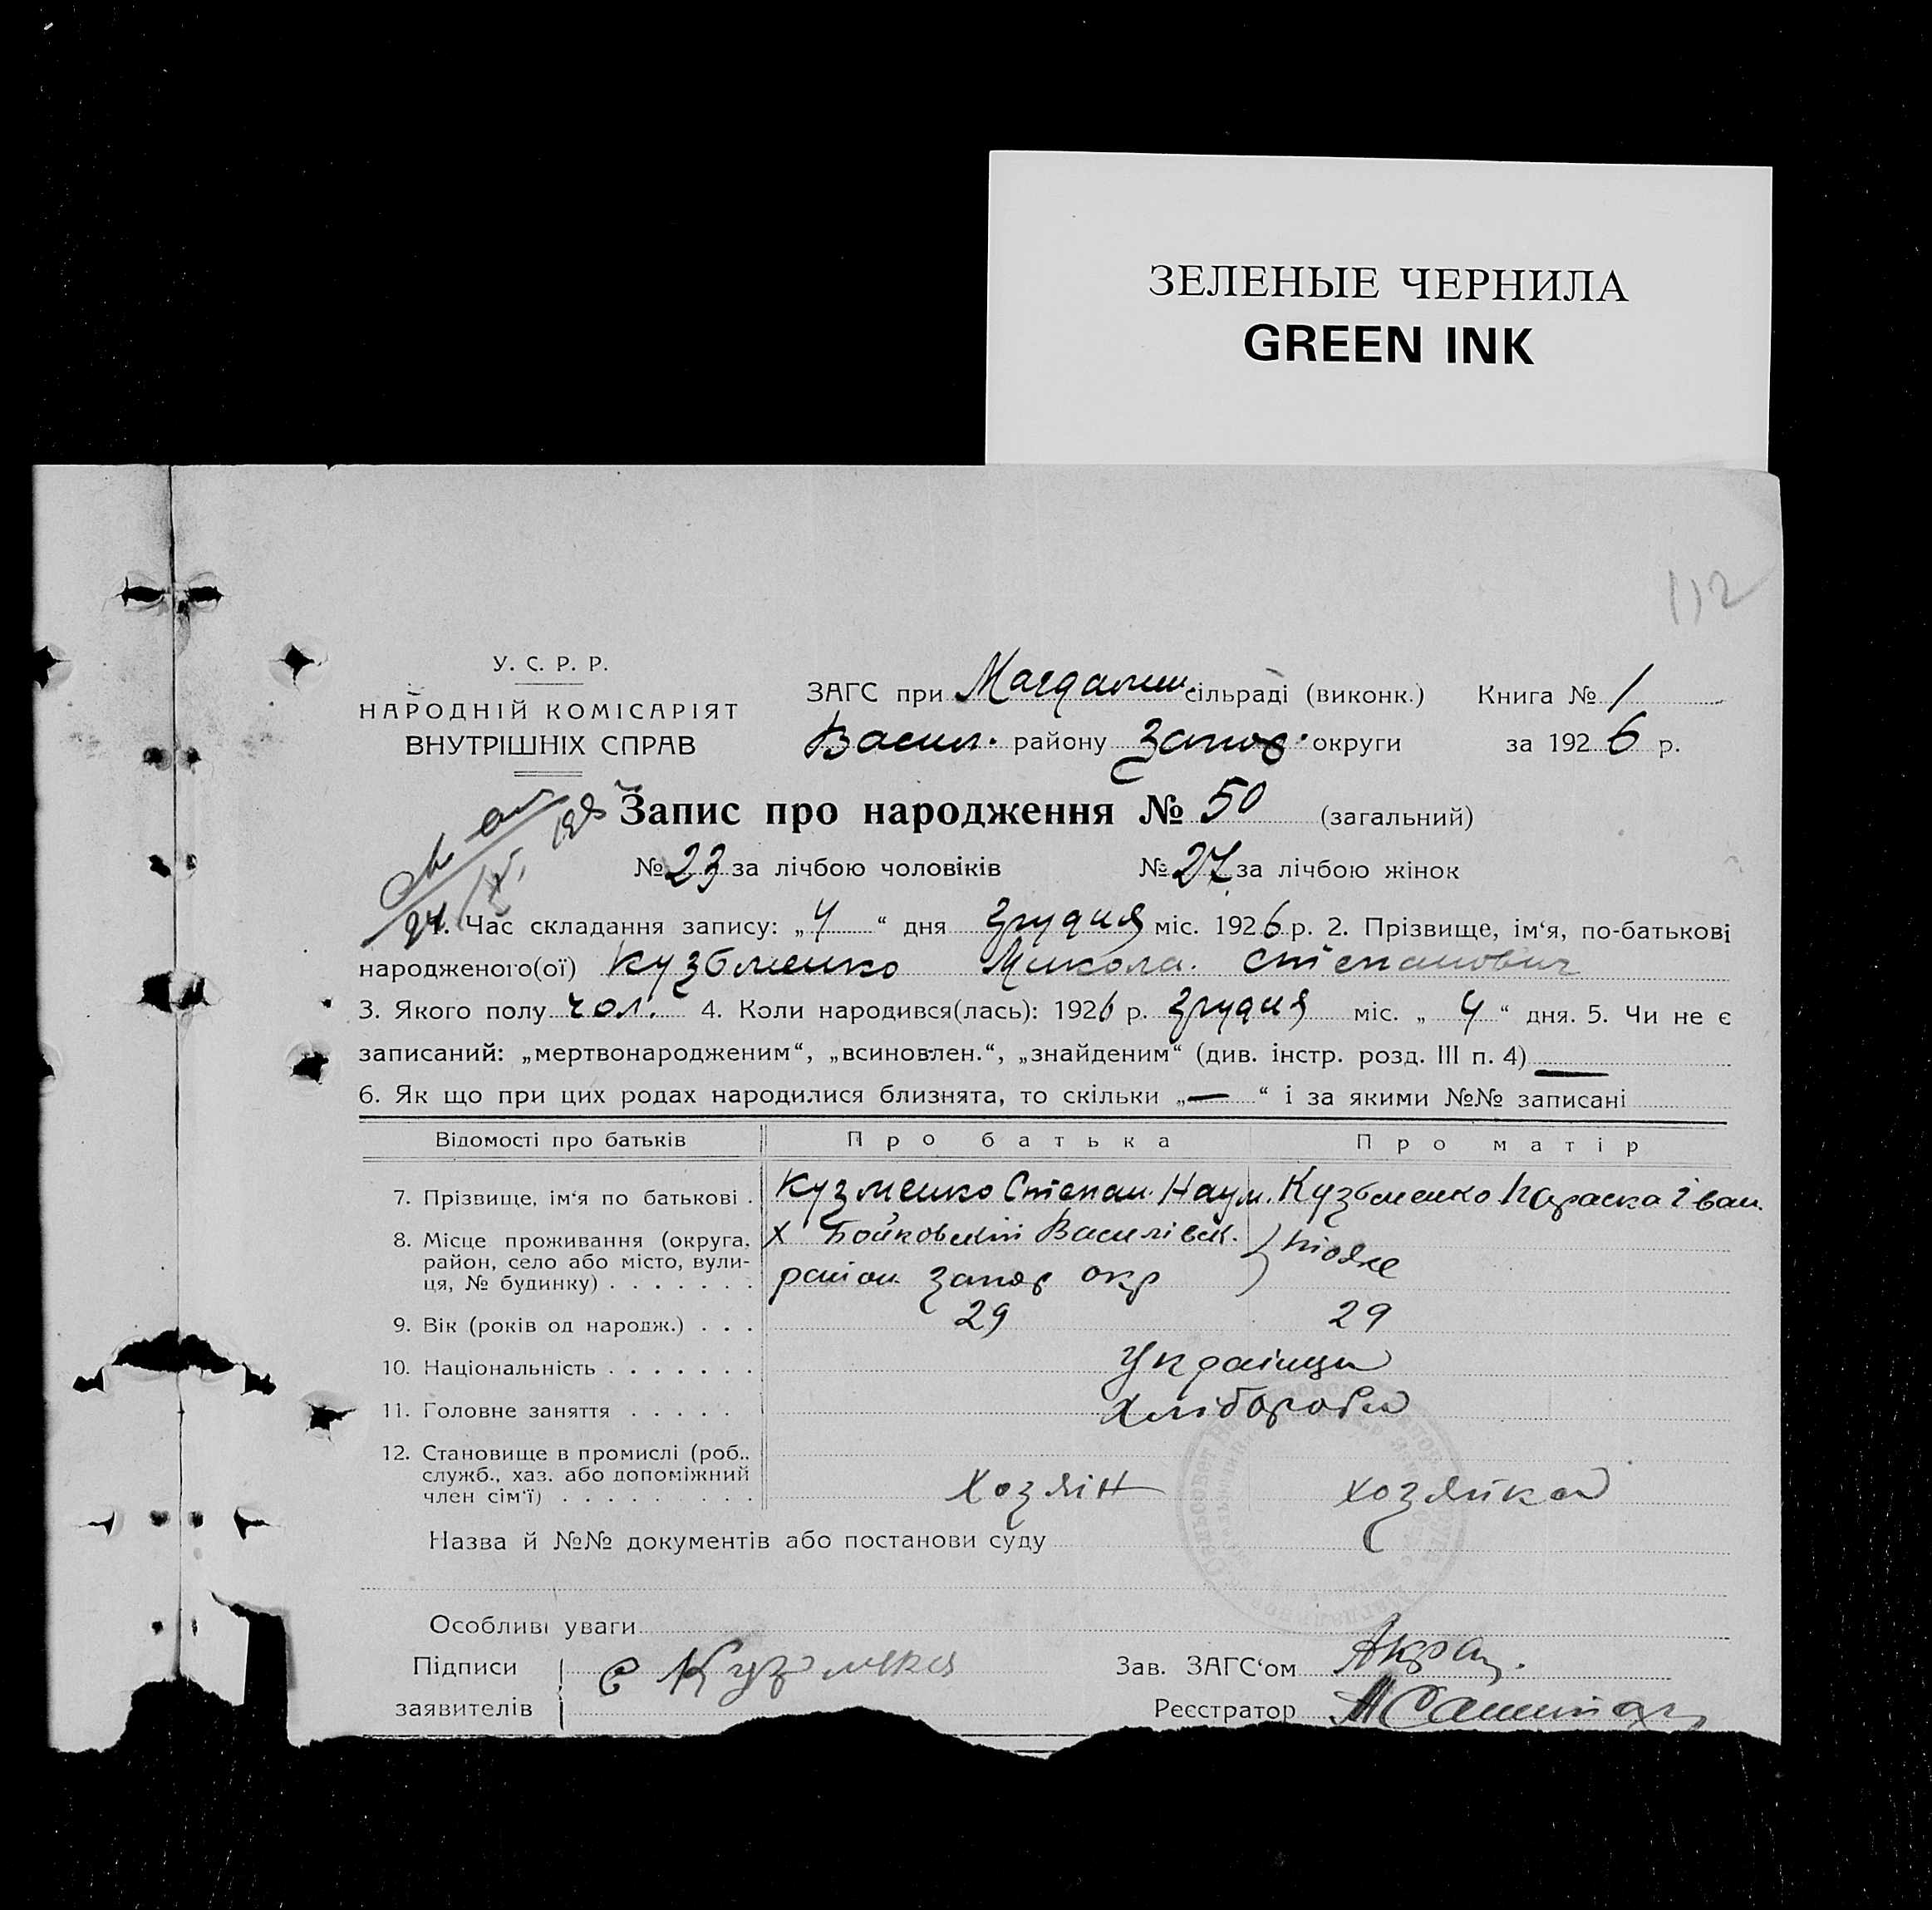 ЗЕЛЕНЫЕ ЧЕРНИЛА
GREEN INK
112
У. С. Р. Р.
НАРОДНІЙ КОМІСАРІЯТ
ВНУТРІШНІХ СПРАВ
ЗАГС при Магдалин сільраді (виконк.) Книга № 1
Васил. району Запор. округи за 1926 р.
Запис про народження № 50 (загальний)
№ 23 за лічбою чоловіків № 27 за лічбою жінок
1. Час складання запису: „4“ дня грудня міс. 1926 р. 2. Прізвище, ім‘я, по-батькові
народженого(ої) Кузьменко Микола Степанович
3. Якого полу чол. 4. Коли народився(лась): 1926 р. грудня міс. „4“ дня. 5. Чи не є
записаний: „мертвонародженим“, „всиновлен.“, „знайденим“ (див. інстр. розд. III п. 4) —
6. Як що при цих родах народилися близнята, то скільки „—“ і за якими №№ записані
Відомості про батьків Про батька Про матір
7. Прізвище, ім‘я по батькові . Кузменко Степан Наум. Кузьменко Параска Іван.
8. Місце проживання (округа, х Бойковский Василівск. } тоже
район, село або місто, вули- район Запор окр
ця, № будинку) . . . . . . .
9. Вік (років од народж.) . . . 29 29
10. Національність . . . . . . . Українци
11. Головне заняття . . . . . Хлібороби
12. Становище в промислі (роб..
служб., хаз. або допоміжний
член сім‘ї) . . . . . . . . Хозяїн хозяйка
Назва й №№ документів або постанови суду
Особливі уваги
Підписи С Кузменко Зав. ЗАГС‘ом
заявителів Реєстратор